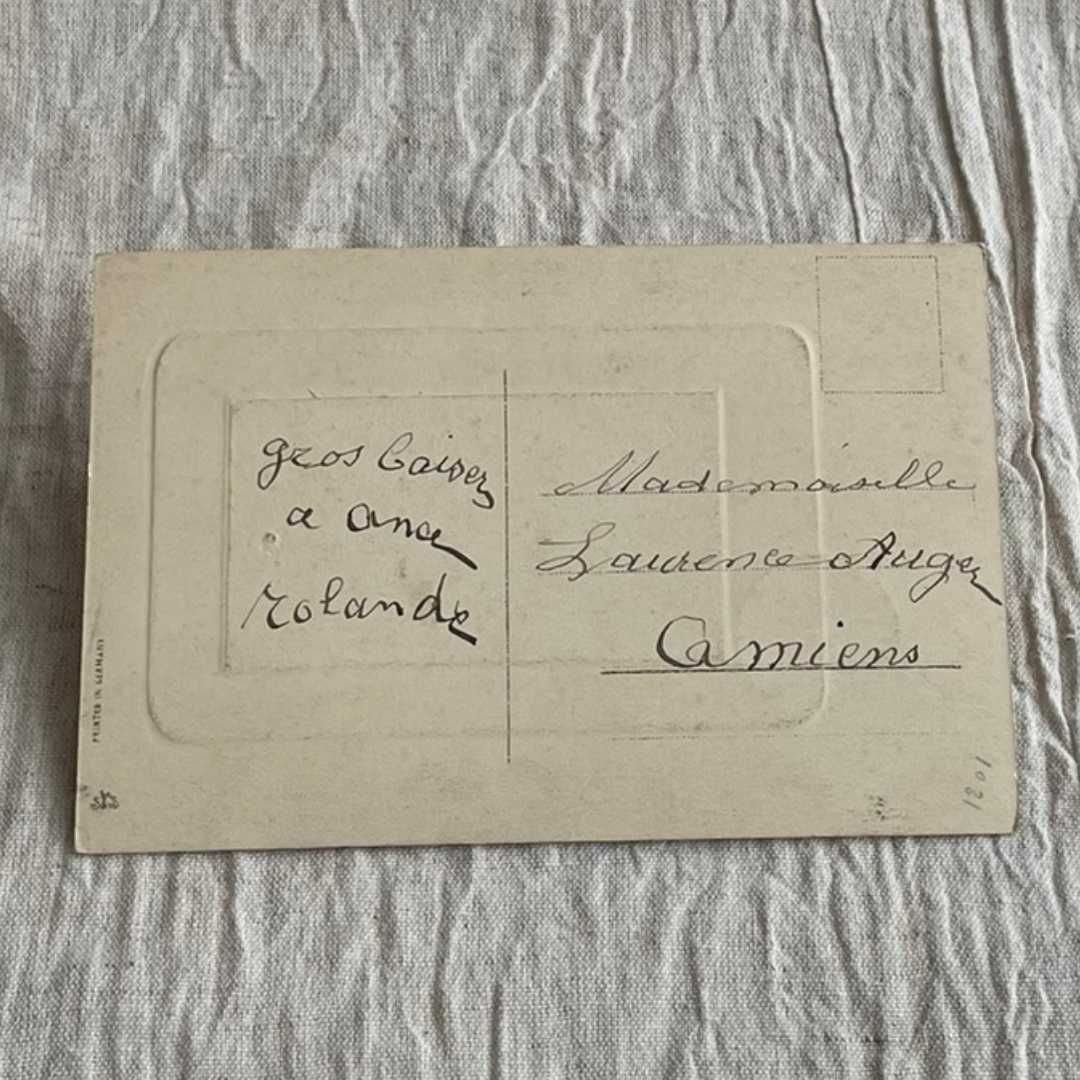 gros baiser
a ana
rolande
Mademoiselle
Laurence Auger
Amiens
PRINTED IN GERMANY
1021